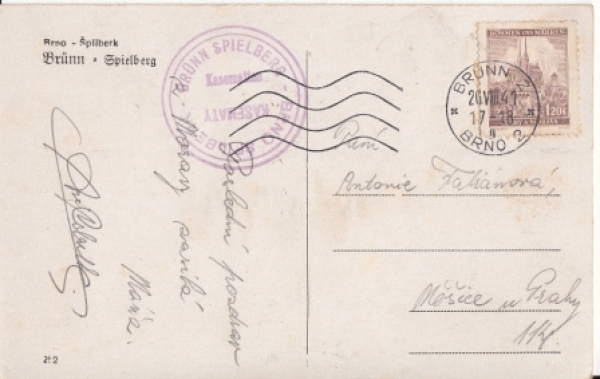 Brno - Špilberk
Brünn - Spielberg
BRÜNN SPIELBERG
Kasematten
KASEMATY
BRNO
BÖHMEN UND MÄHREN
1.20K
BRÜNN 2
26.VIII.41
17-18
a
BRNO 2
Poslední pozdrav
z Moravy zasílá
Máňa.
Paní
Antonie Faltánová,
Měšice u Prahy
2